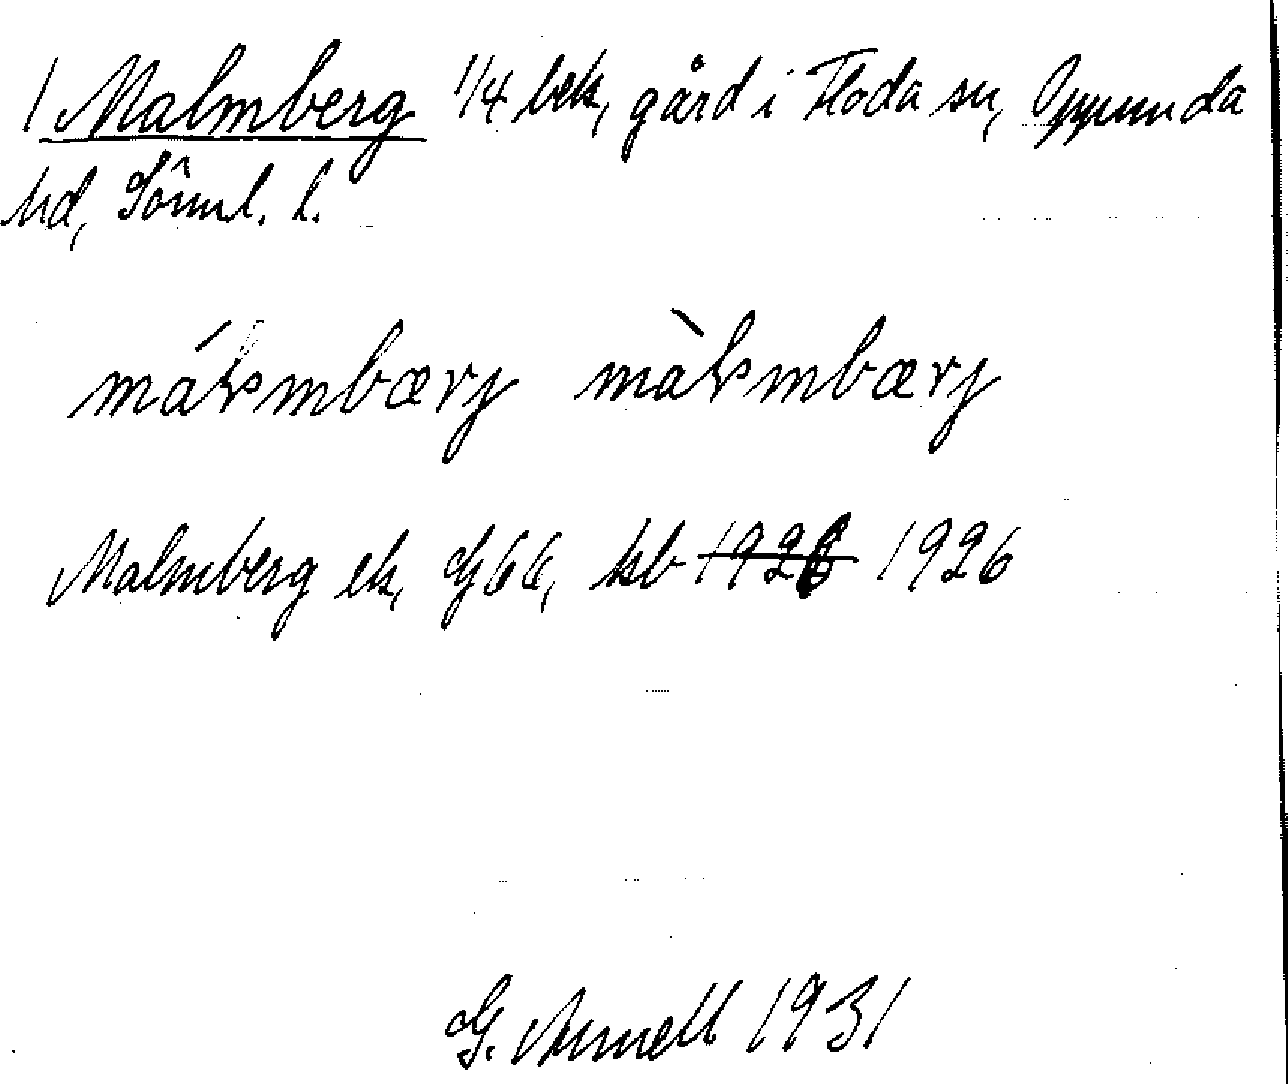 1 Malmberg 1/4 bek, gård i Floda sn, Oppunda
hd, Söml. l.
málmbærj màlmbærj
Malmberg ek, G66, kb 1926 1926
G. Arnell 1931